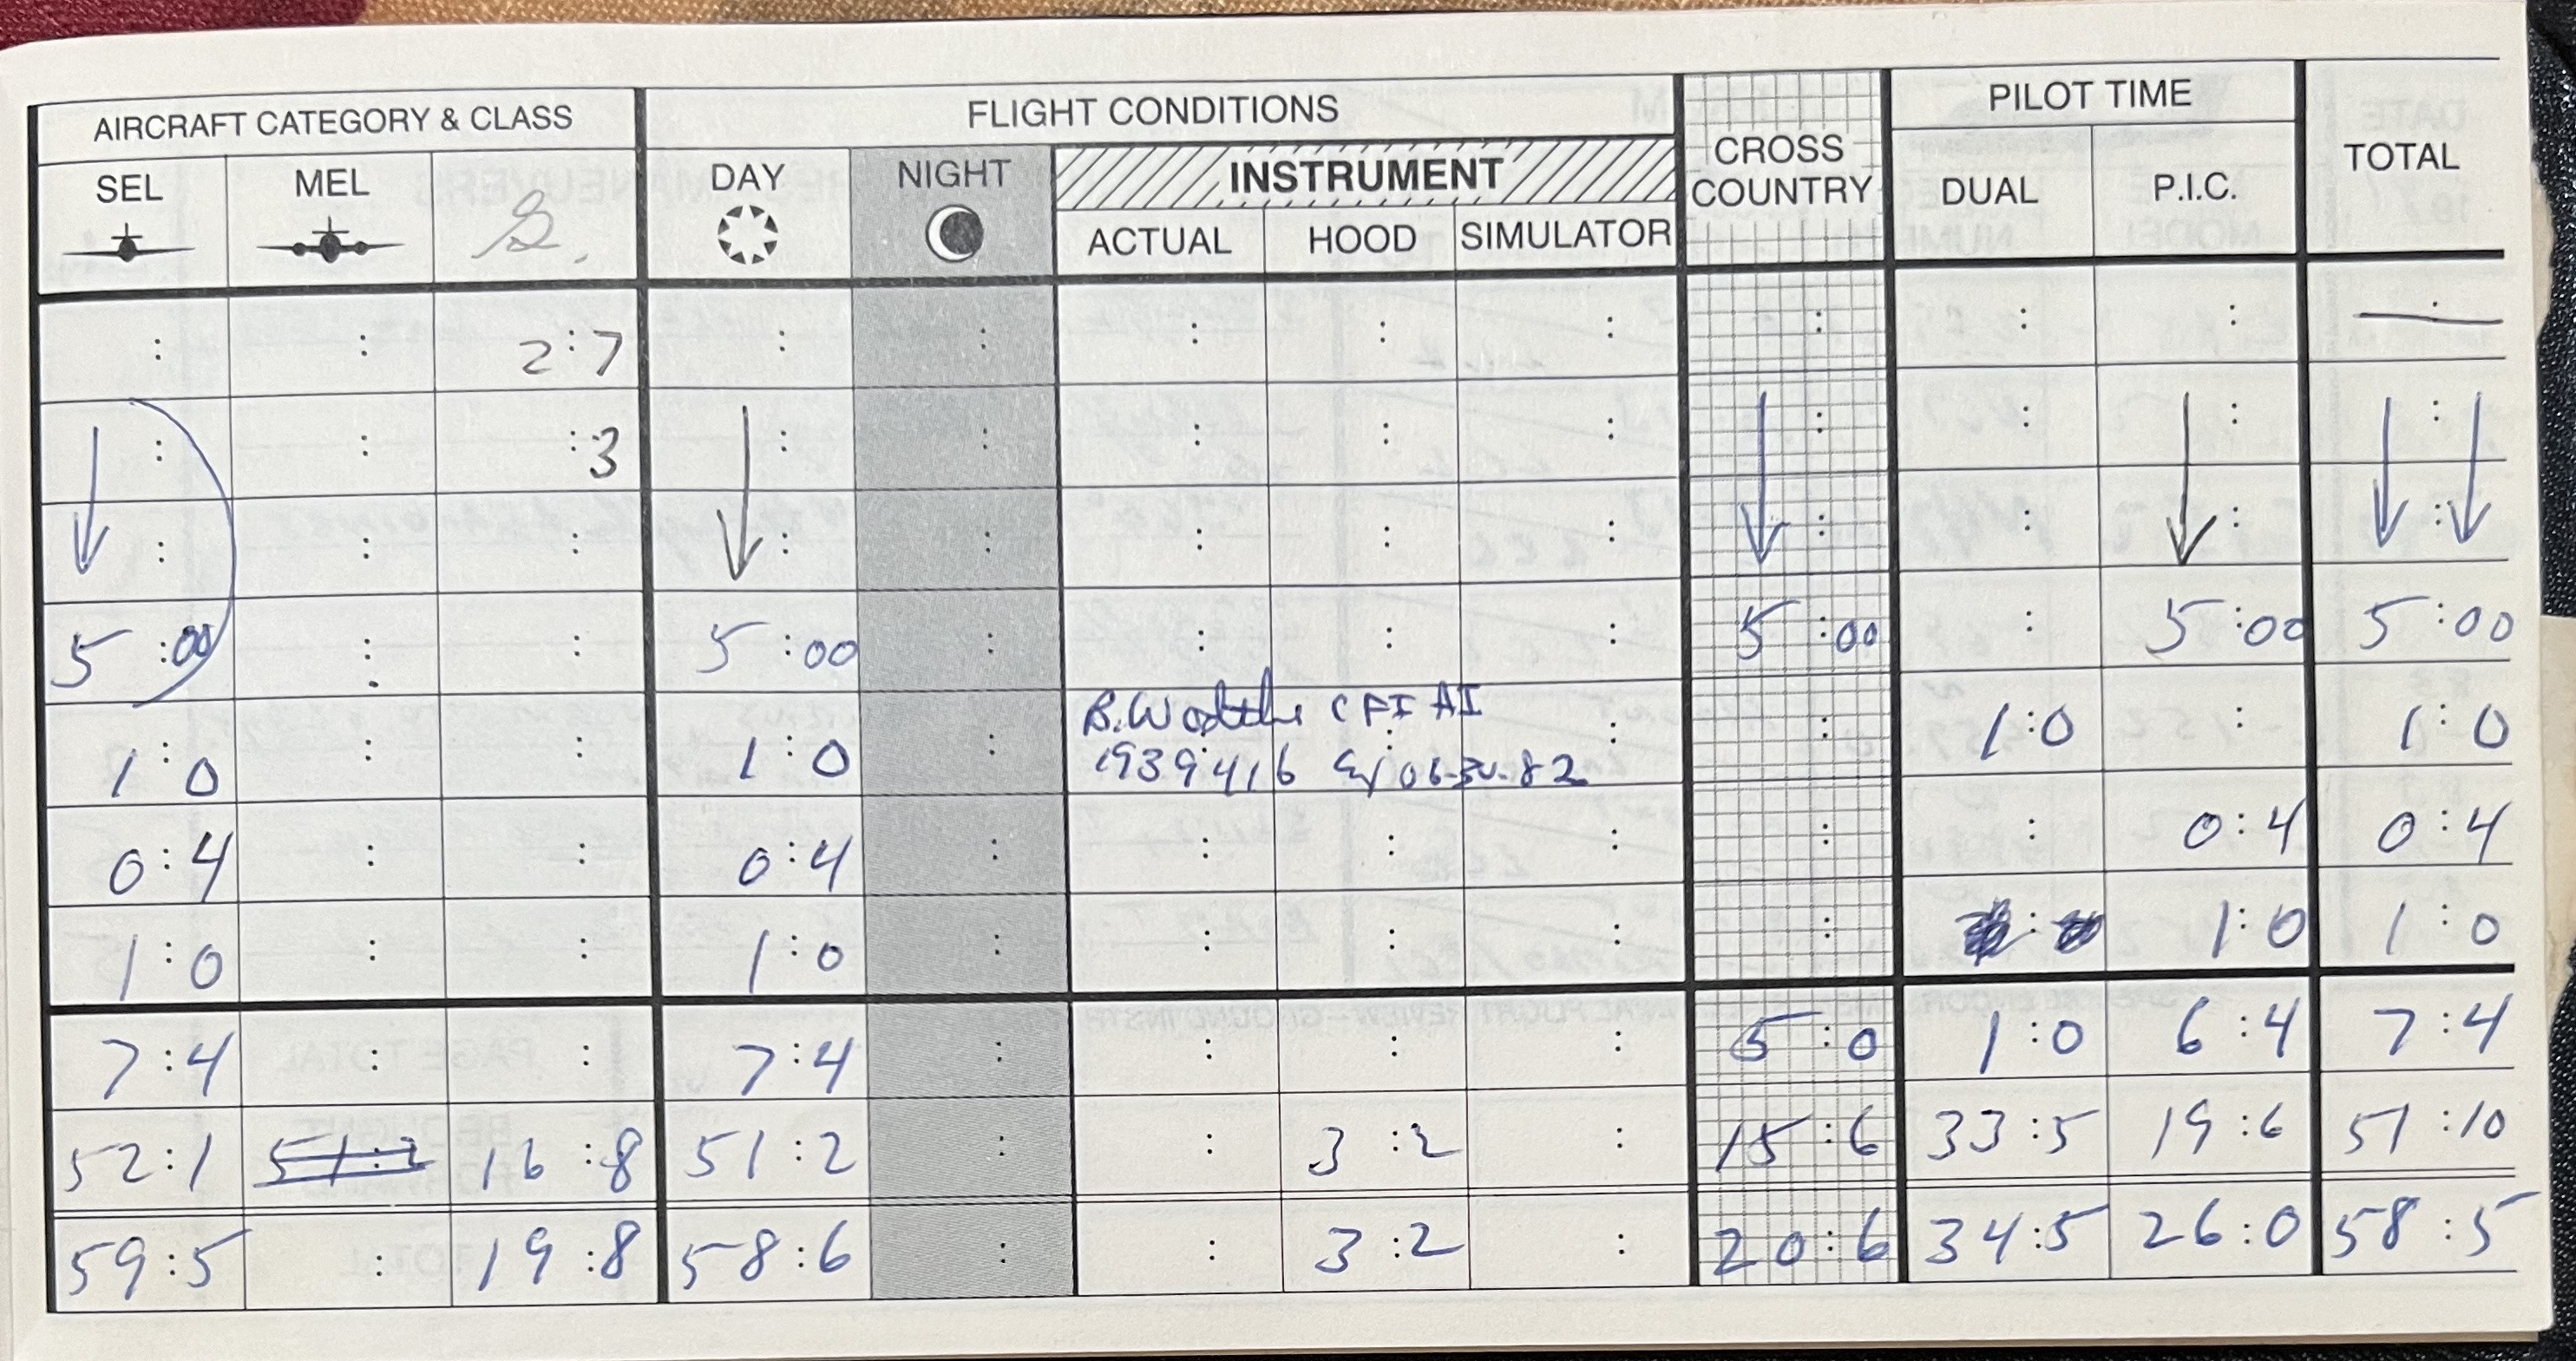 AIRCRAFT CATEGORY & CLASS FLIGHT CONDITIONS CROSS COUNTRY PILOT TIME TOTAL
SEL MEL DAY NIGHT INSTRUMENT DUAL P.I.C.
ACTUAL HOOD SIMULATOR
2:7
:3
5:00 5:00 5:00 5:00 5:00
1:0 1:0 CFI AI 1:0 1:0
1939416 06-30-82
0:4 0:4 0:4 0:4
1:0 1:0 1:0 1:0
7:4 7:4 5:0 1:0 6:4 7:4
52:1 51:2 16:8 51:2 3:2 15:6 33:5 19:6 51:10
59:5 19:8 58:6 3:2 20:6 34:5 26:0 58:5